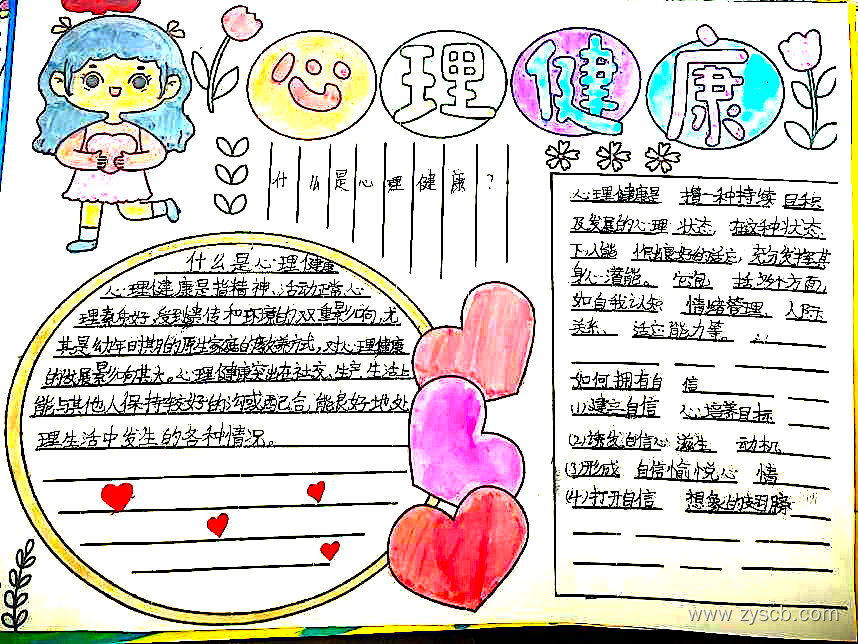 心理健康
什么是心理健康？
什么是心理健康
心理健康是指精神、活动正常、心
理素质好,受到遗传和环境的双重影响,尤
其是幼年时期的原生家庭的教养方式,对心理健康
的发展影响甚大。心理健康突出在社交、生产、生活上
能与其他人保持较好的沟或配合,能良好地处
理生活中发生的各种情况。
心理健康是 指一种持续 且积
及发展的心理 状态, 在这种状态
下人能 作良好的适应, 充分发挥其
身心潜能。 它包 括多个方面,
如自我认知 情绪管理、 人际
关系、 适应能力等。
如何拥有自 信
(1)建立自信 心培养目标
(2)诱发自信心 滋生 动机
(3)形成 自信愉悦心 情
(4)打开自信 想象的翅膀
www.zyscb.com